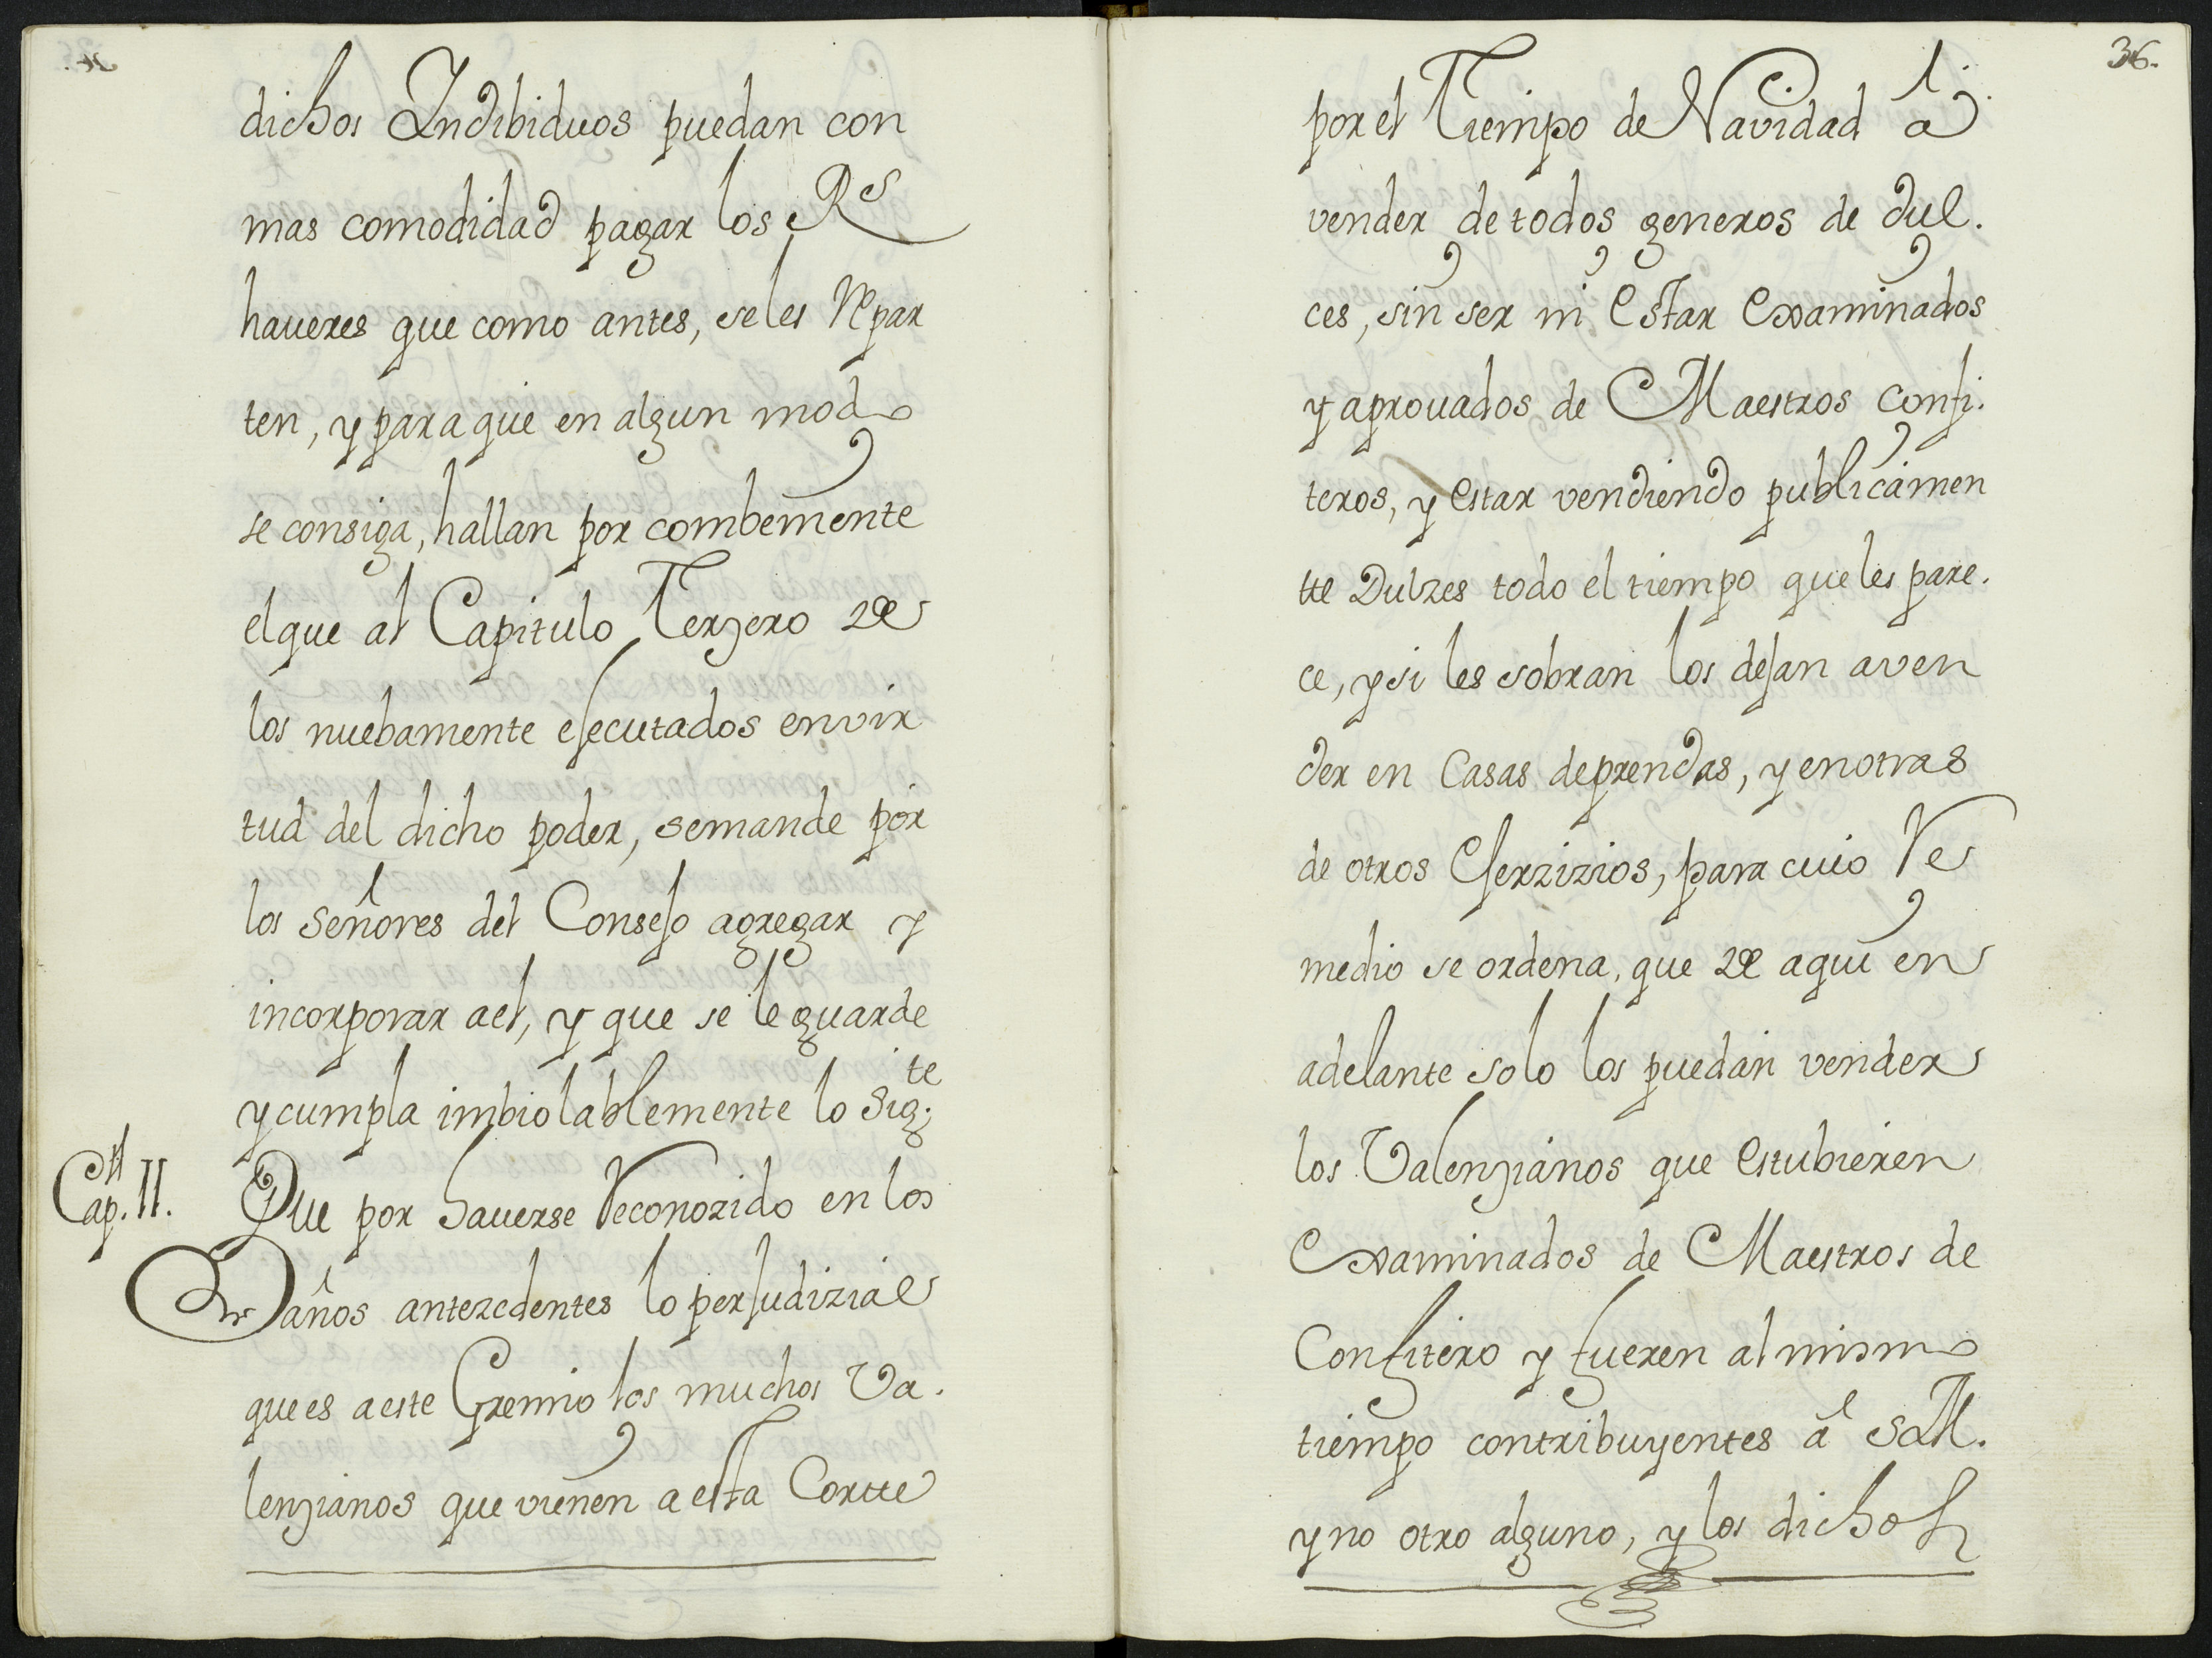 dichos Indibiduos puedan con
mas comodidad pagar los Rs
haveres que como antes, seles Repar
ten, y para que en algun modo
se consiga, hallan por combeniente
el que al Capitulo Terzero de
los nuebamente ejecutados en vir
tud del dicho poder, se mande por
los Señores del Consejo agregar y
incorporar ael, y que se le guarde
y cumpla imbiolablemente lo Sig.te
Cap. II. Que por haverse Reconozido en los
años antezedentes lo perjudizial
que es a este Gremio los muchos Va.
lenzianos que vienen a esta Cortte
36.
por el Tiempo de Navidad â
vender de todos generos de dul.
ces, sin ser ni estar examinados
y aprovados de Maestros confi.
teros, y estar vendiendo publicamen
tte Dulzes todo el tiempo que les pare.
ce, y si les sobran los dejan aven
der en Casas de prendas, y en otras
de otros ejerzizios, para cuio Re
medio se ordena, que de aqui en
adelante solo los puedan vender
los Valenzianos que estubieren
examinados de Maestros de
Confitero y fueren al mismo
tiempo contribuyentes â S.M.
y no otro alguno, y los dichos